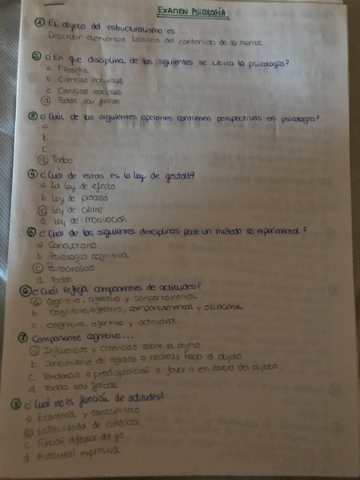 EXAMEN PSICOLOGÍA
① El objeto del estructuralismo es ...
Describir elementos básicos del contenido de la mente
② ¿En que disciplina de las siguientes se ubica la psicología?
a. Filosofía
b. Ciencias naturales
c. Ciencias sociales
d Todas son falsas
③ ¿Cuál de las siguientes opciones contienen perspectivas en psicología?
a
b.
c
d Todas
④ ¿Cuál de estas es la ley de gestalt?
a La ley de efecto
b ley de proceso
c ley de cierre
d. ley de motivación
⑤ ¿Cuál de las siguientes disciplinas pone un método no experimental?
a Conductismo
b. Psicología cognitiva
c Psicoanálisis
d. Todas
⑥ ¿Cuál refleja componentes de actitudes?
a Cognitivo, afectivo y comportamental
b cognitivo, afectivo, comportamental y situacional
c cognitivo, afectivo y actitudinal
⑦ Componente cognitivo ...
a Influencias y creencias sobre el objeto
b. Sentimiento de agrado o rechazo hacia el objeto
c. Tendencia o predisposición a favor o en contra del objeto
d. Todas son falsas
⑧ ¿Cuál no es función de actitudes?
a Economía y conocimiento
b de conducta
c. Función defensor del yo
d Autoimagen expresiva